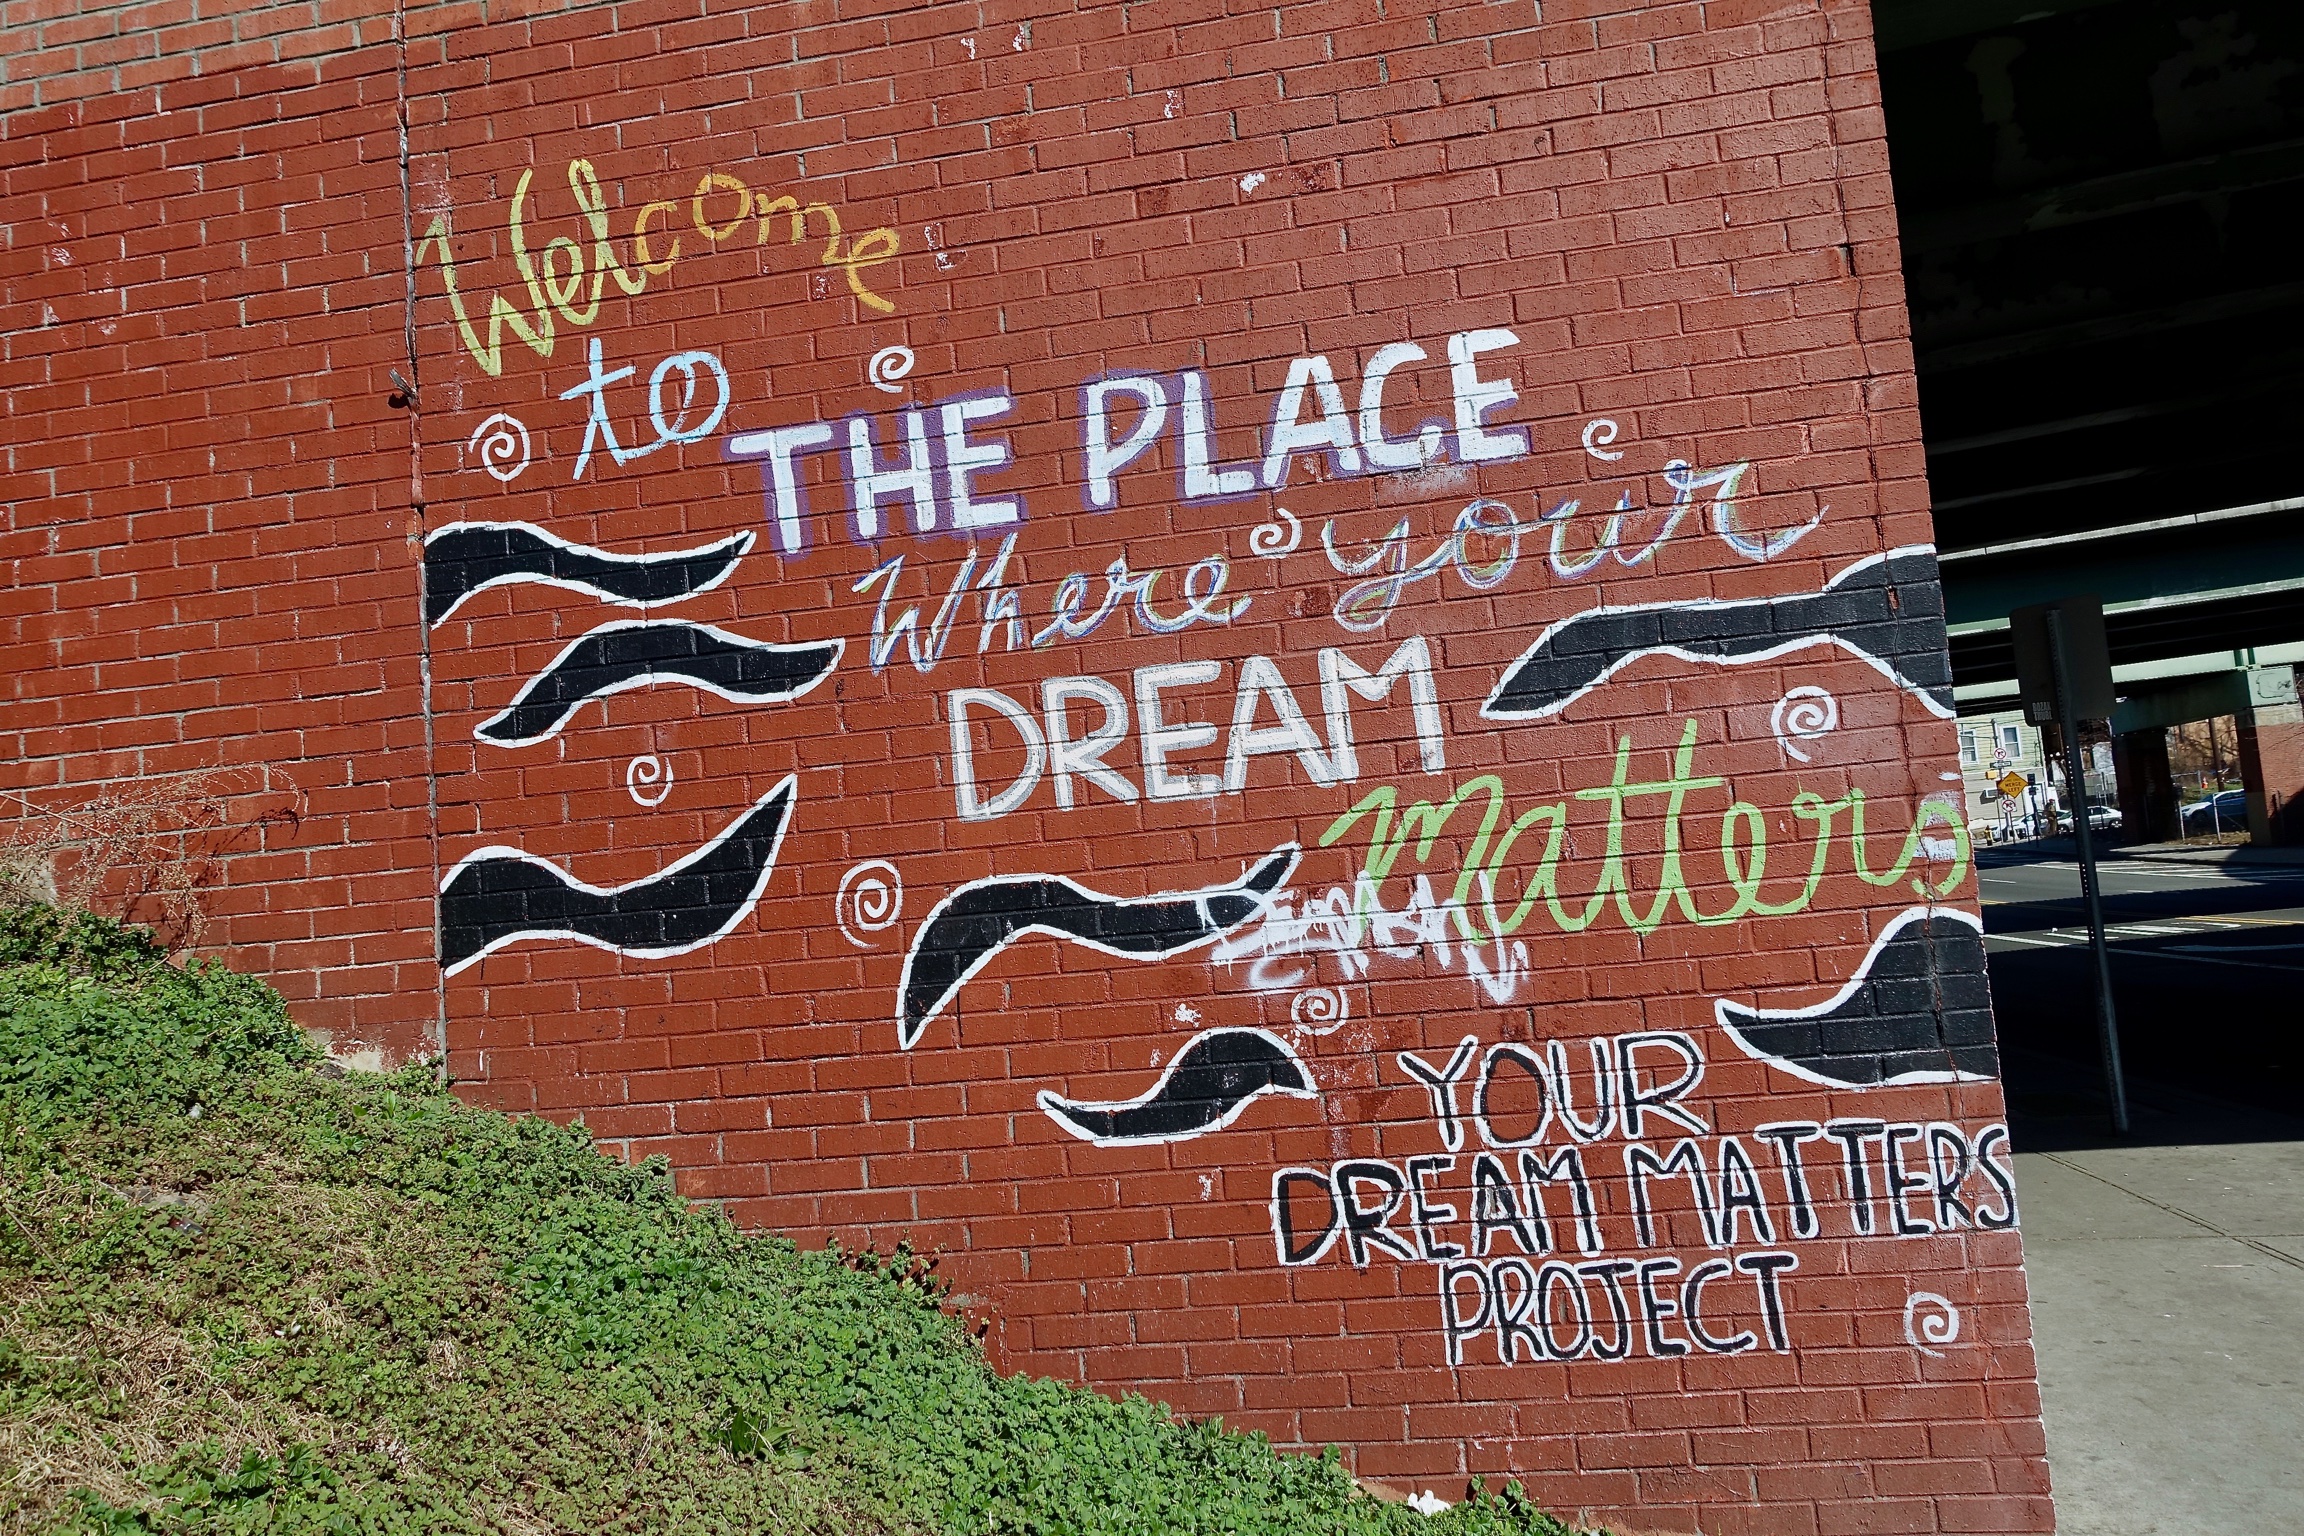 Welcome
to THE PLACE
Where your
DREAM
matters
YOUR
DREAM MATTERS
PROJECT